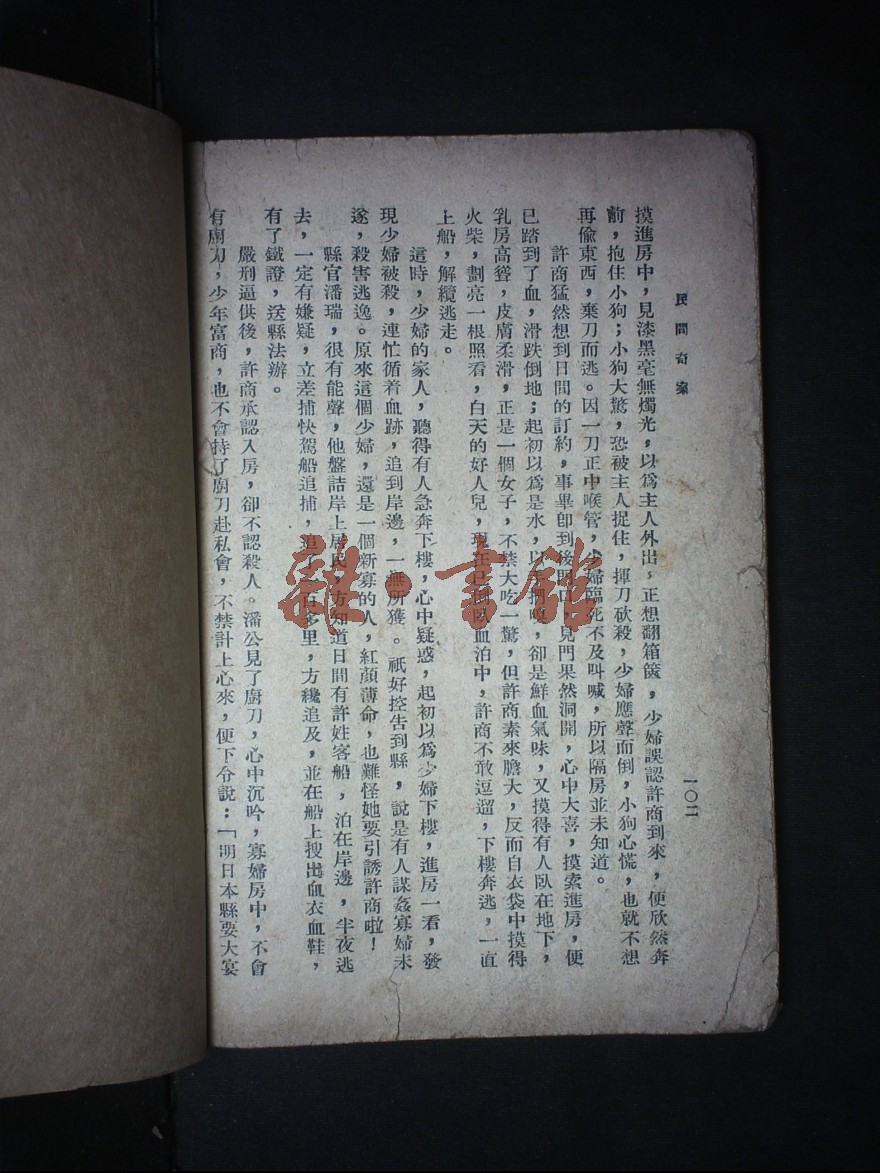 民間奇案
一〇二
摸進房中，見漆黑毫無燭光，以爲主人外出，正想翻箱篋，少婦誤認許商到來，便欣然奔
前，抱住小狗；小狗大驚，恐被主人捉住，揮刀砍殺，少婦應聲而倒，小狗心慌，也就不想
再偷東西，棄刀而逃。因一刀正中喉管，少婦臨死不及叫喊，所以隔房並未知道。
許商猛然想到日間的訂約，事畢卽到後門口，見門果然洞開，心中大喜，摸索進房，便
已踏到了血，滑跌倒地；起初以爲是水，以手捫嗅，卻是鮮血氣味，又摸得有人臥在地下，
乳房高聳，皮膚柔滑，正是一個女子，不禁大吃一驚，但許商素來膽大，反而自衣袋中摸得
火柴，劃亮一根照看，白天的好人兒，現在已倒臥血泊中，許商不敢逗遛，下樓奔逃，一直
上船，解纜逃走。
這時，少婦的家人，聽得有人急奔下樓，心中疑惑，起初以爲少婦下樓，進房一看，發
現少婦被殺，連忙循着血跡，追到岸邊，一無所獲。祇好控告到縣，說是有人謀姦寡婦未
遂，殺害逃逸。原來這個少婦，還是一個新寡的人，紅顏薄命，也難怪她要引誘許商啦！
縣官潘瑞，很有能聲，他盤詰岸上居民，方知道日間有許姓客船，泊在岸邊，半夜逃
去，一定有嫌疑，立差捕快駕船追捕，追了一百多里，方纔追及，並在船上搜出血衣血鞋，
有了鐵證，送縣法辦。
嚴刑逼供後，許商承認入房，卻不認殺人。潘公見了廚刀，心中沉吟，寡婦房中，不會
有廚刀，少年富商，也不會持了廚刀赴私會，不禁計上心來，便下令說：「明日本縣要大宴
雜·書館